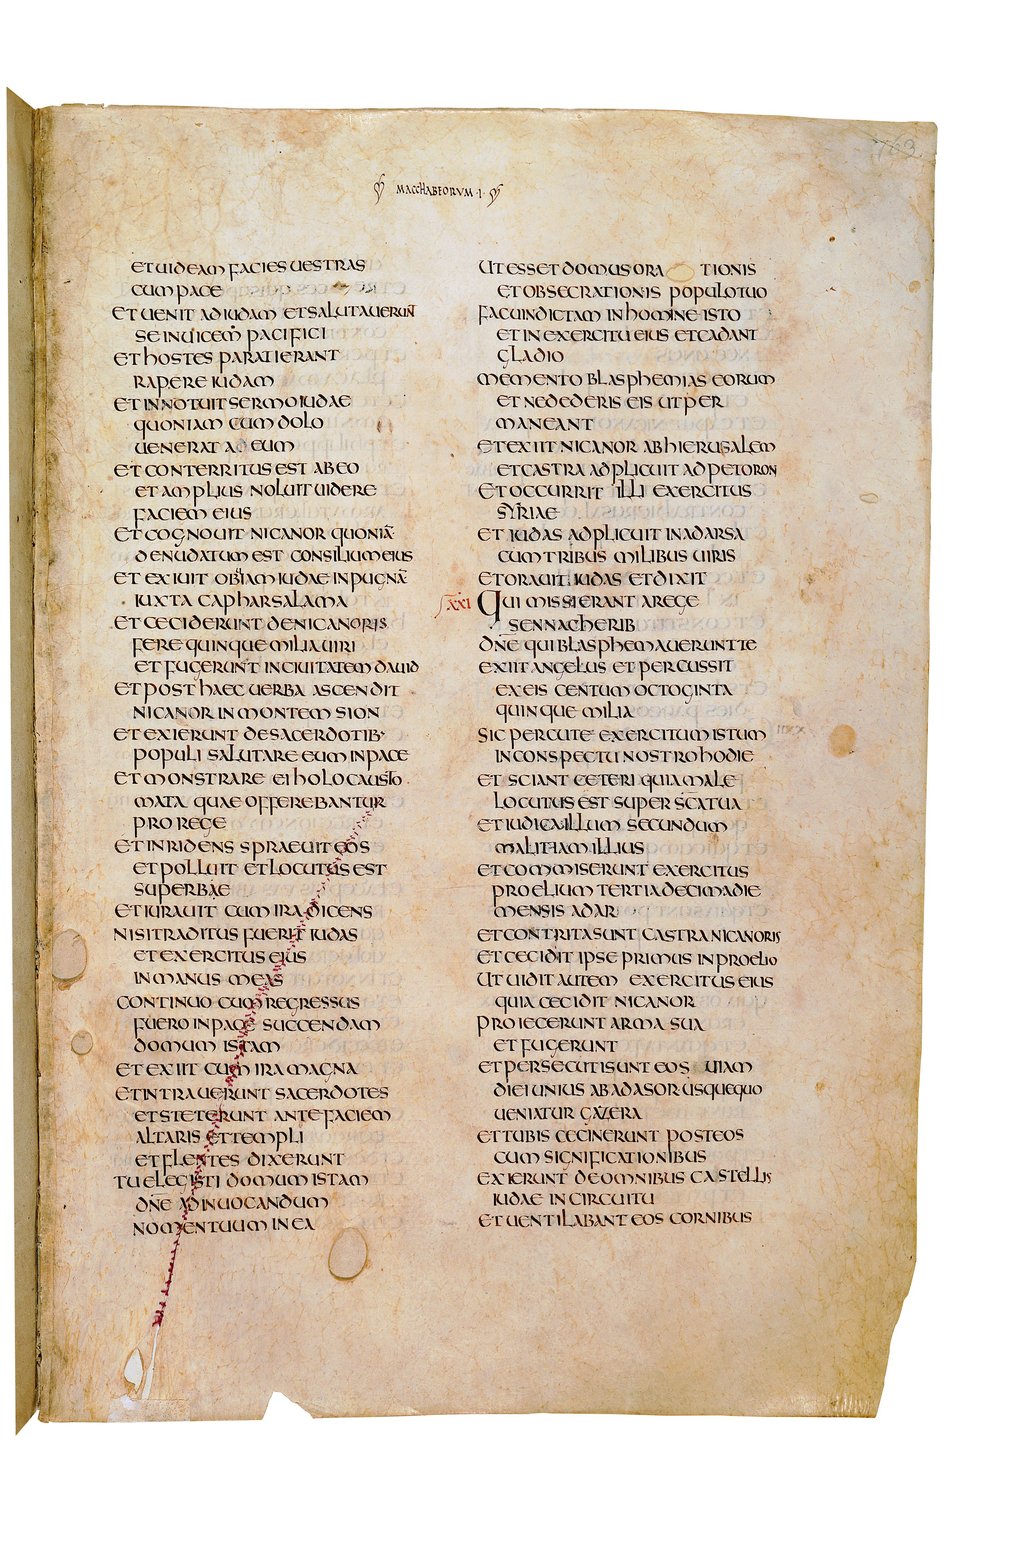 763
MACCHABEORVM · I ·
ETUIDEAM FACIES UESTRAS
CUM PACE
ET UENIT AD IUDAM ET SALUTAUERUNT
SE INUICEM PACIFICI
ET HOSTES PARATI ERANT
RAPERE IUDAM
ET INNOTUIT SERMO IUDAE
QUONIAM CUM DOLO
UENERAT AD EUM
ET CONTERRITUS EST AB EO
ET AMPLIUS NOLUIT UIDERE
FACIEM EIUS
ET COGNOUIT NICANOR QUONIĀ
DENUDATUM EST CONSILIUM EIUS
ET EXIUIT OBUIAM IUDAE IN PUGNĀ
IUXTA CAPHARSALAMA
ET CECIDERUNT DE NICANORIS
FERE QUINQUE MILIA UIRI
ET FUGERUNT IN CIUITATEM DAUID
ET POST HAEC UERBA ASCENDIT
NICANOR IN MONTEM SION
ET EXIERUNT DE SACERDOTIB·
POPULI SALUTARE EUM IN PACE
ET MONSTRARE EI HOLOCAUSTO
MATA QUAE OFFEREBANTUR
PRO REGE
ET INRIDENS SPRAEUIT EOS
ET POLLUIT ET LOCUTUS EST
SUPERBAE
ET IURAUIT CUM IRA DICENS
NISI TRADITUS FUERIT IUDAS
ET EXERCITUS EIUS
IN MANUS MEAS
CONTINUO CUM REGRESSUS
FUERO IN PACE SUCCENDAM
DOMUM ISTAM
ET EXIIT CUM IRA MAGNA
ET INTRAUERUNT SACERDOTES
ET STETERUNT ANTE FACIEM
ALTARIS ET TEMPLI
ET FLENTES DIXERUNT
TU ELEGISTI DOMUM ISTAM
DN̄E AD INUOCANDUM
NOMEN TUUM IN EA
UT ESSET DOMUS ORATIONIS
ET OBSECRATIONIS POPULO TUO
FAC UINDICTAM IN HOMINE ISTO
ET IN EXERCITU EIUS ET CADANT
GLADIO
MEMENTO BLASPHEMIAS EORUM
ET NE DEDERIS EIS UT PER
MANEANT
ET EXIIT NICANOR AB HIERUSALEM
ET CASTRA ADPLICUIT AD PETORON
ET OCCURRIT ILLI EXERCITUS
SYRIAE
ET IUDAS ADPLICUIT IN ADARSA
CUM TRIBUS MILIBUS UIRIS
ET ORAUIT IUDAS ET DIXIT
XXI QUI MISSI ERANT A REGE
SENNACHERIB
DN̄E QUI BLASPHEMAUERUNT TE
EXIIT ANGELUS ET PERCUSSIT
EX EIS CENTUM OCTOGINTA
QUINQUE MILIA
SIC PERCUTE EXERCITUM ISTUM
IN CONSPECTU NOSTRO HODIE
ET SCIANT CETERI QUIA MALE
LOCUTUS EST SUPER SC̄A TUA
ET IUDICA ILLUM SECUNDUM
MALITIAM ILLIUS
ET COMMISERUNT EXERCITUS
PROELIUM TERTIADECIMA DIE
MENSIS ADAR
ET CONTRITA SUNT CASTRA NICANORIS
ET CECIDIT IPSE PRIMUS IN PROELIO
UT UIDIT AUTEM EXERCITUS EIUS
QUIA CECIDIT NICANOR
PROIECERUNT ARMA SUA
ET FUGERUNT
ET PERSECUTI SUNT EOS UIAM
DIEI UNIUS AB ADASOR USQUEQUO
UENIATUR GAZERA
ET TUBIS CECINERUNT POST EOS
CUM SIGNIFICATIONIBUS
EXIERUNT DE OMNIBUS CASTELLIS
IUDAE IN CIRCUITU
ET UENTILABANT EOS CORNIBUS